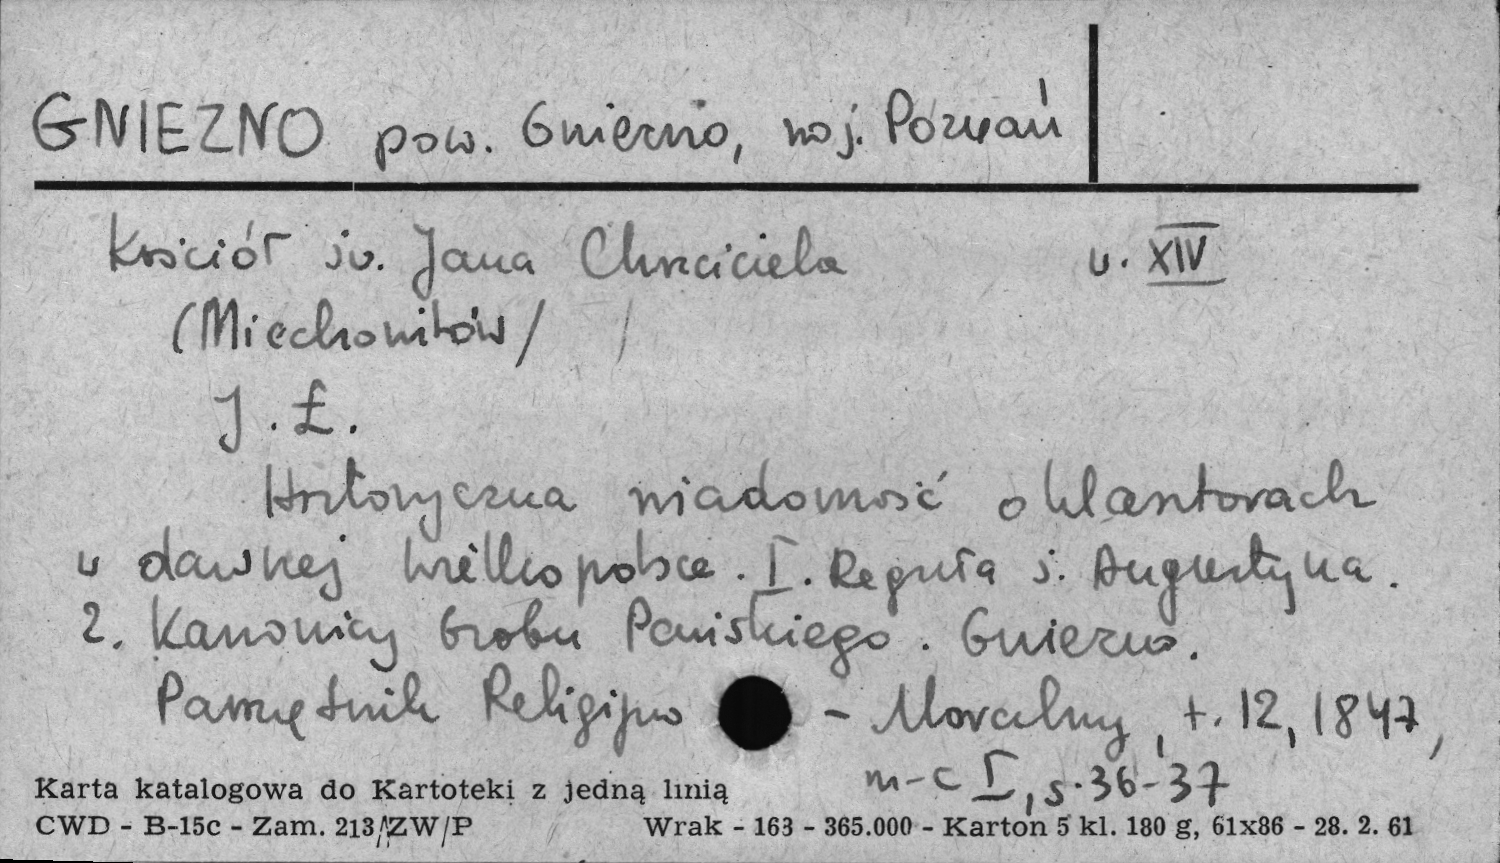 GNIEZNO pow. Gniezno, woj. Poznań
Kościół św. Jana Chrzciciela w. XIV
(Miechowitów/
J. Ł.
Historyczna wiadomość o klasztorach
w dawnej wielkopolsce. I. Reguła ś. Augustyna.
2. Kanonicy Grobu Pańskiego. Gniezno.
Pamiętnik Religijno - Moralny, t. 12, 1847,
m-c I, s. 36-37
Karta katalogowa do Kartoteki z jedną linią
CWD - B-15c - Zam. 213/ZW/P Wrak - 163 - 365.000 - Karton 5 kl. 180 g, 61x86 - 28. 2. 61